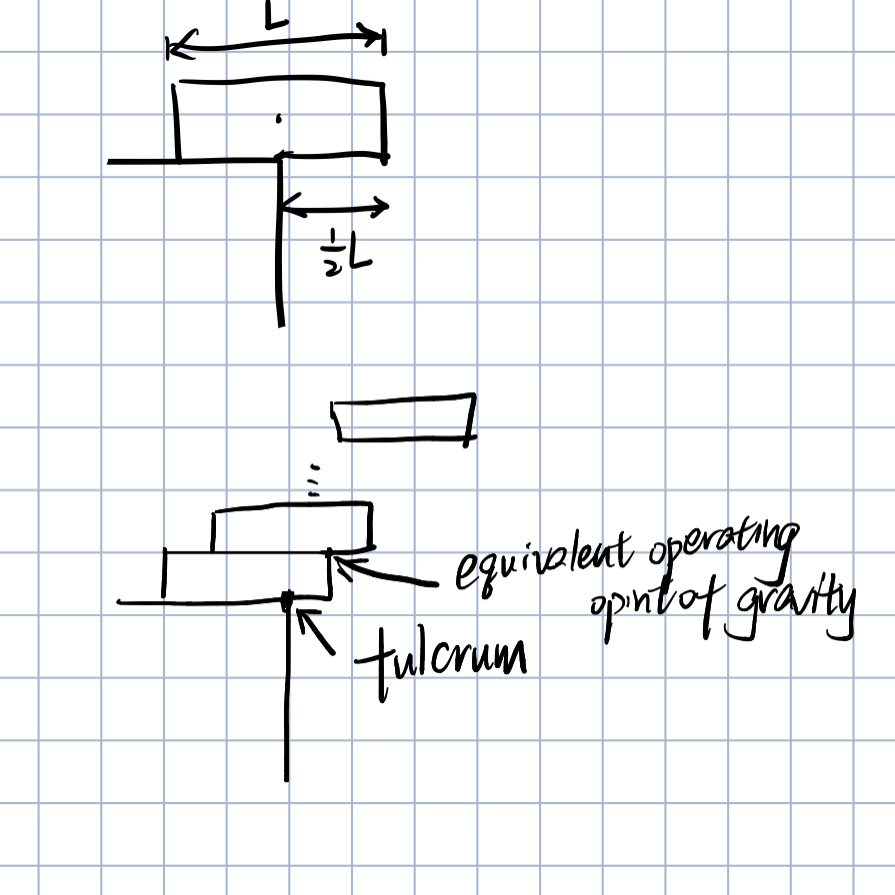 L
½L
equivalent operating
opint of gravity
fulcrum